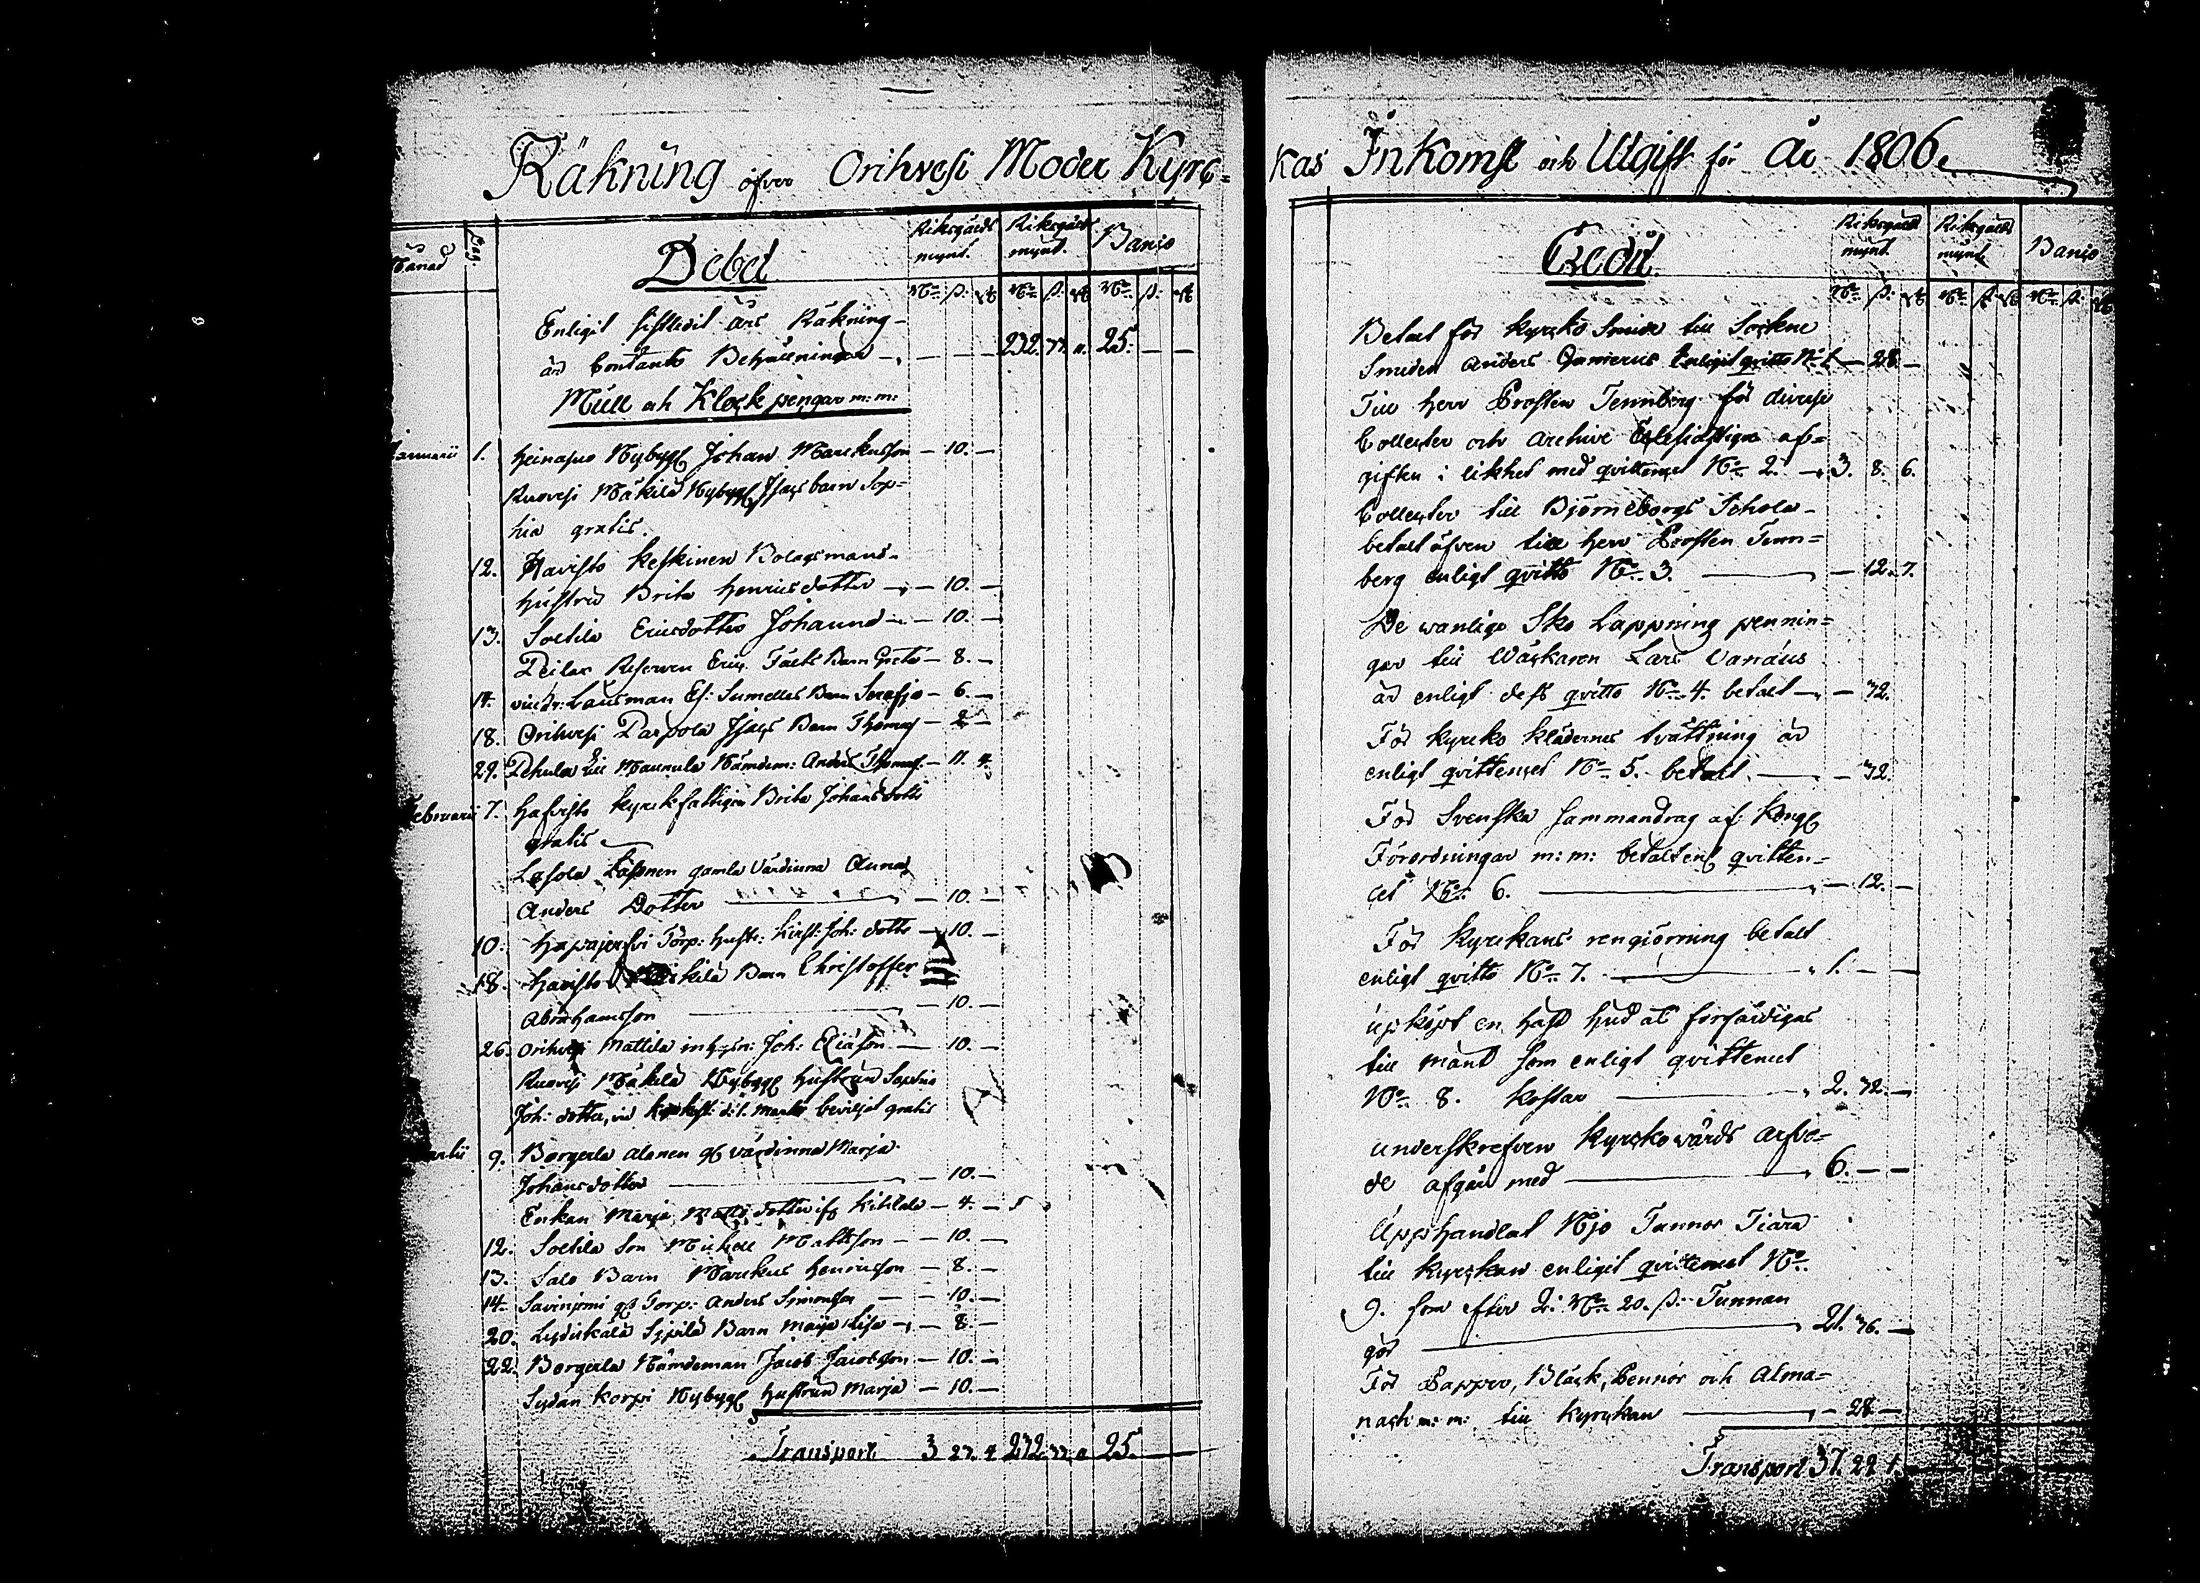 Räkning öfver Orihvesi Moder Kyrc=
Månad
Dag.
Debet
Riksgälds mynt.
Riksgälds mynt.
Banco
Enligit sistledit års Räkning
är Contante Behållningen — — — 232. 33. 11. 25. — —
Mull och Klock pengar m: m:
Januarii 1. Heinapuo Nybygg Johan Marckusson — 10. —
Ruovesi Mäkilä Nybygg Isacs barn Sop=
hia gratis.
12. Havisto Keskinen Bolagsmans
Hustru Brita Henricsdotter — 10. —
13. Soltila Ericsdotter Johanna — 10. —
Eric Barn Greta — 8. —
14. Länsman Barn — 6. —
18. Orihvesi Parpola Isacs Barn Thomas — 2 —
29. Pehula Lill Maunula Nämdem: Anders Thomas — 11. 4.
Februarii 7. Havisto Kyrck fattigen Brita Johansdotter
gratis
gamla Värdinna Anna
Anders Dotter — 10. —
10. Hapajerfvi Torp: Hustr: Kirst: Joh: dotter — 10. —
18. Havisto Barn Christoffer
Abrahamsson — 10. —
26. Orihvesi Mattila inhysn: Joh: Eliäson — 10. —
Ruovesi Mäkilä Nybygg Hustrun Sophia
Joh: dotter, vid beviljat gratis
9. Borgerla Alanen gl värdinna Marja
Johansdotter — 10. —
Enkan Maria Matts dotter — 4. —
12. Soltila Son Michell Mattsson — 10. —
13. Salo Barn Marckus Henricsson — 8. —
14. Savinjemi gl Torp: Anders Simonsson — 10. —
20. Lyydickälä Sipilä Barn Maija Lisa — 8. —
22. Borgerla Nämdeman Jacob Jacobsson — 10. —
Sydän korpi Nybygg Hustrun Marja — 10. —
Transport 3 27. 4 232. 33. 11 25.
kas Inkomst och Utgift för År 1806.
Credit.
Riksgälds mynt.
Riksgälds mynt.
Banco
Betalt för Kyrcko Smide till Sockne
Smeden Anders enligt qvitto No 1 — 28. —
Till Herr Prosten Tennberg för diverse
Collecter och Archive Eclesiastique af=
gifter i likhet med qvittencet No 2. — 3. 8. 6.
Collecter till Björneborgs Schola
betalt äfven till Herr Prosten Tenn=
berg enligt qvitto No 3. — 12. 7.
De wanliga Sko Lappning pennin=
gar till Wäckaren Lars Vanäus
är enligt dess qvitto No 4. betalt — 32.
För Kyrcko klädernes tvättning är
enligt qvittencet No 5. betalt — 32.
För Svenska Sammandrag af Kongl
Förordningar m: m: betalt enl qvitten=
cet No 6. — 12. —
För Kyrckans rengiörning betalt
enligt qvitto No 7. — 1. — —
upköpt en Häst hud at förfärdigas
till som enligt qvittencet
No 8. kostar — 2. 32. —
underskrefven Kyrckowärds arfvo=
de afgår med — 6. — —
Upphandlat Nijo Tunnor Tiära
till Kyrckan enligit qvittencet No
9. som efter 2: Rd 20. ß. Tunnan
gör — 21. 36. —
För Papper, Bläck, Pennor och Alma=
nach m: m: till Kyrckan — 28 —
Transport 37. 22 1.